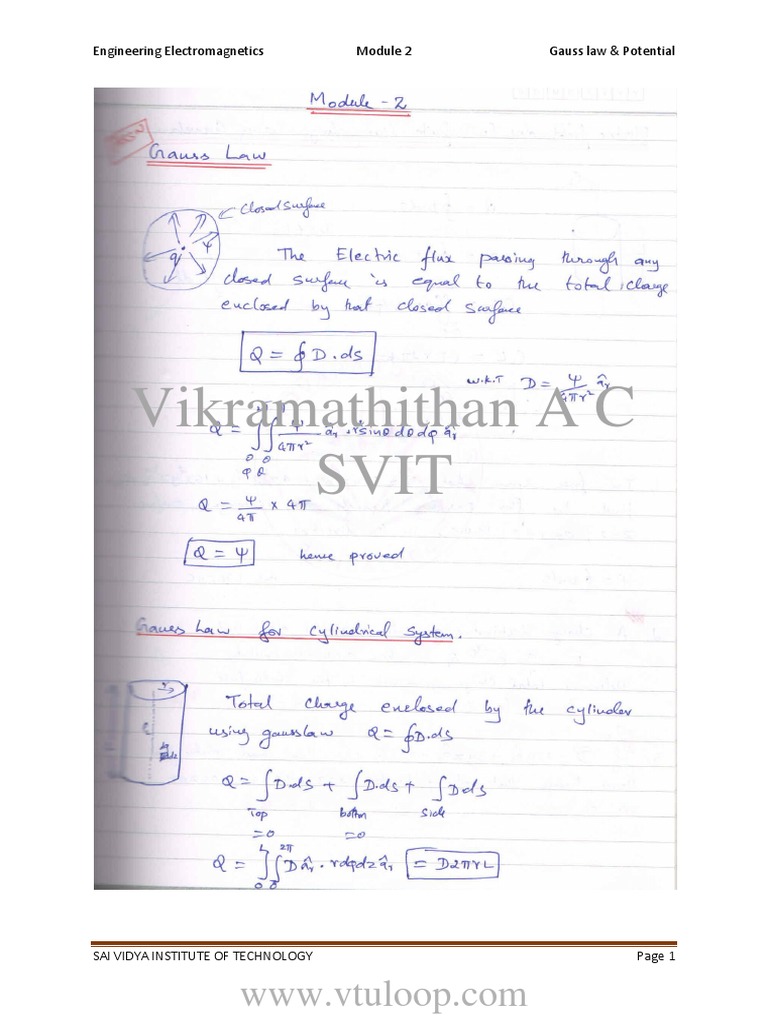 Engineering Electromagnetics Module 2 Gauss law & Potential
Module - 2
Gauss Law
closed surface
ψ
q
The Electric flux passing through any
closed surface is equal to the total charge
enclosed by that closed surface
Q = ∮ D. ds
w.k.T D = ψ/4πr² âr
Vikramathithan A C
Q = ∫∫ ψ/4πr² âr . r² sinθ dθ dφ âr
0 0
φ θ
SVIT
Q = ψ/4π × 4π
Q = ψ hence proved
Gauss Law for cylindrical system.
Total charge enclosed by the cylinder
using gauss law Q = ∮D.ds
Q = ∫D.ds + ∫D.ds + ∫D.ds
Top bottom side
=0 =0
L 2π
Q = ∫∫ D âr . r dφ dz âr = D2πrL
0 0
SAI VIDYA INSTITUTE OF TECHNOLOGY Page 1
www.vtuloop.com